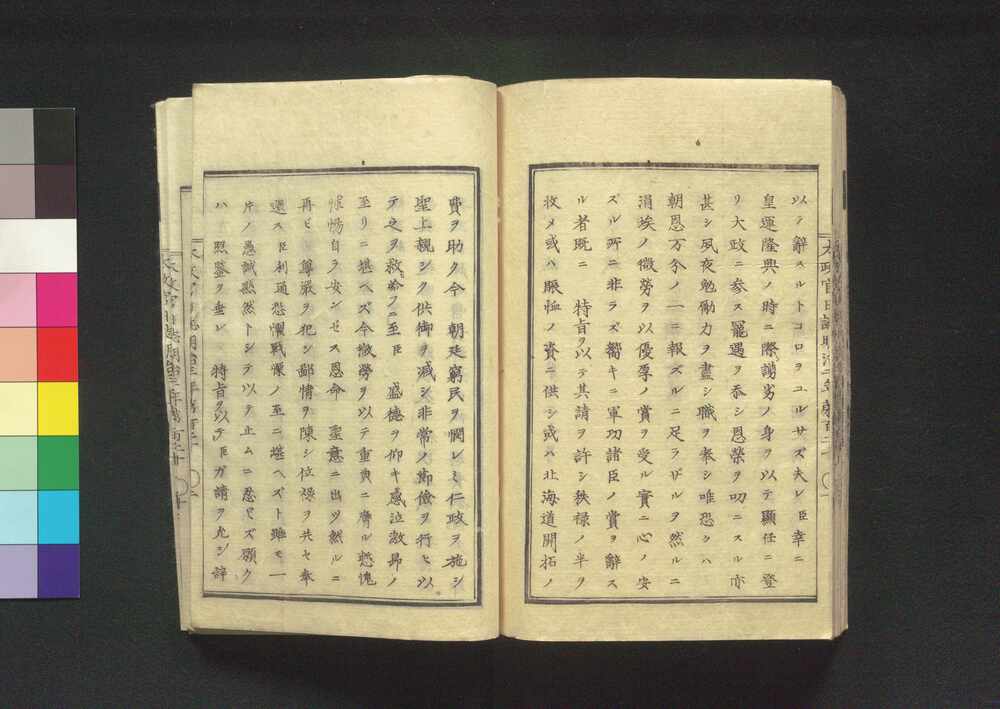 以テ辭スルトコロヲユルサズ夫レ臣幸ニ
皇運隆興ノ時ニ際シ謭劣ノ身ヲ以テ顯任ニ登
リ大政ニ参ス寵遇ヲ忝シ恩榮ヲ叨ニスル亦
甚シ夙夜勉勵力ヲ盡シ職ヲ奉シ唯恐クハ
朝恩万分ノ一ニ報ズルニ足ラザルヲ然ルニ
涓埃ノ微勞ヲ以優厚ノ賞ヲ受ル實ニ心ノ安
ズル所ニ非ラズ嚮キニ軍功諸臣ノ賞ヲ辭ス
ル者既ニ 特旨ヲ以テ其請ヲ許シ秩禄ノ半ヲ
收メ或ハ賑恤ノ資ニ供シ或ハ北海道開拓ノ
費ヲ助ク今 朝廷窮民ヲ憫レミ仁政ヲ施シ
聖上親シク供御ヲ減シ非常ノ節儉ヲ行ヒ以
テ之ヲ救給フニ至臣 盛徳ヲ仰キ感泣激昂ノ
至リニ堪ヘズ今微勞ヲ以テ重典ニ膺ル慙愧
惕自ラ安ンゼス恩命 聖意ニ出ツ然ルニ
再ビ 尊嚴ヲ犯シ鄙情ヲ陳シ位禄ヲ共セ奉
還ス臣利通恐懼戰慄ノ至ニ堪ヘズト雖モ一
片ノ愚誠默然トシテ以テ止ムニ忍ビズ願ク
ハ 照鑒ヲ垂レ 特旨ヲ以テ臣ガ請ヲ允シ辞